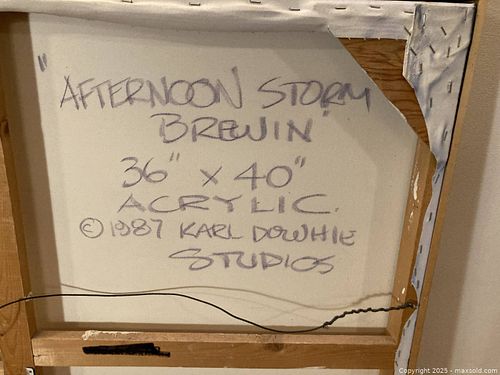 "AFTERNOON STORM
BREWIN"
36" x 40"
ACRYLIC.
© 1987 KARL DOWHIE
STUDIOS
Copyright 2025 - maxsold.com